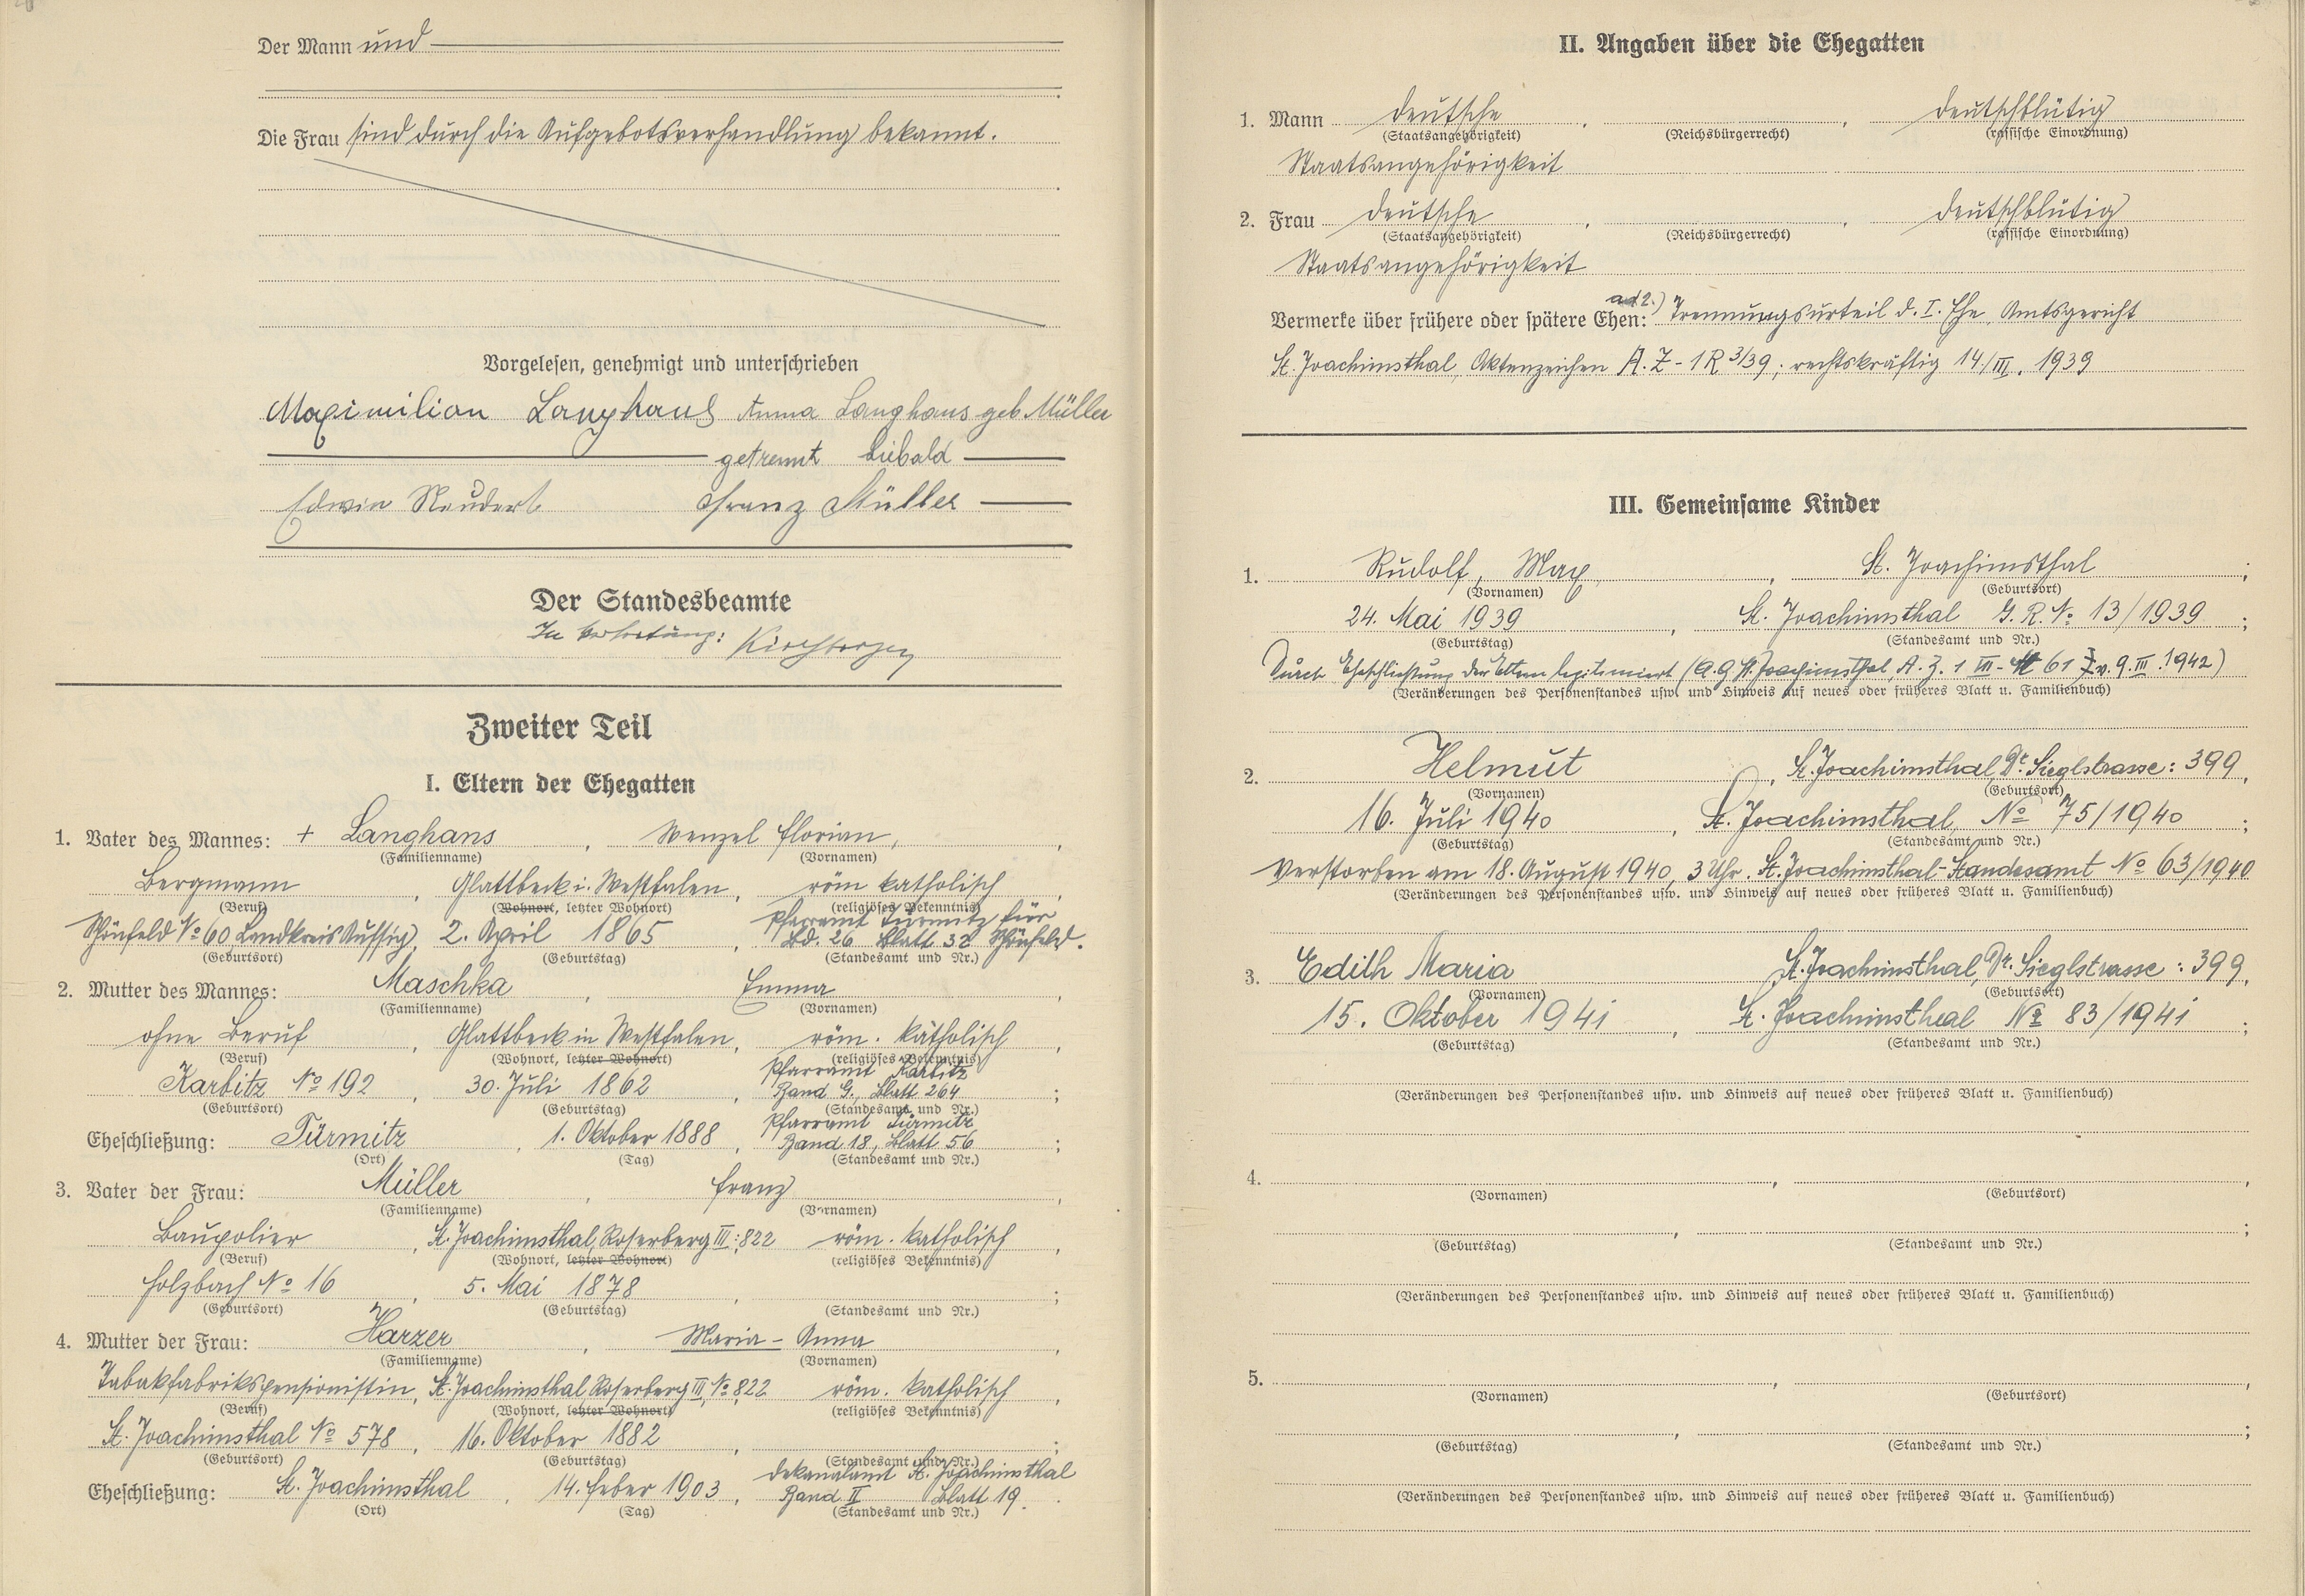 Der Mann und
Die Frau sind durch die Aufgebotsverhandlung bekannt.
Vorgelesen, genehmigt und unterschrieben
Maximilian Langhans Anna Langhans geb Müller
getrennt Liebald
Edwin Neudert Franz Müller
Der Standesbeamte
In Vertretung:
Zweiter Teil
I. Eltern der Ehegatten
1. Vater des Mannes: + Langhans, Wenzel Florian,
(Familienname) (Vornamen)
Bergmann, Glattbeck i. Westfalen, röm katholisch,
(Beruf) (Wohnort, letzter Wohnort) (religiöses Bekenntnis)
Pfarramt Türmitz für
Schönfeld No 60 Landkreis Aussig, 2. April 1865, Bd. 26 Blatt 32 Schönfeld.
(Geburtsort) (Geburtstag) (Standesamt und Nr.)
2. Mutter des Mannes: Maschka, Emma,
(Familienname) (Vornamen)
ohne Beruf, Glattbeck in Westfalen, röm. katholisch,
(Beruf) (Wohnort, letzter Wohnort) (religiöses Bekenntnis)
Pfarramt Karbitz
Karbitz No 192, 30. Juli 1862, Band G., Blatt 264;
(Geburtsort) (Geburtstag) (Standesamt und Nr.)
Pfarramt Türmitz
Eheschließung: Türmitz, 1. Oktober 1888, Band 18, Blatt 56;
(Ort) (Tag) (Standesamt und Nr.)
3. Vater der Frau: Müller, Franz,
(Familienname) (Vornamen)
Baupolier, St. Joachimsthal, Roserberg III: 822 röm. katholisch,
(Beruf) (Wohnort, letzter Wohnort) (religiöses Bekenntnis)
Holzbach No 16, 5. Mai 1878, ;
(Geburtsort) (Geburtstag) (Standesamt und Nr.)
4. Mutter der Frau: Harzer, Maria - Anna,
(Familienname) (Vornamen)
Tabakfabrikspensionistin, St. Joachimsthal Roserberg III, No 822 röm. katholisch,
(Beruf) (Wohnort, letzter Wohnort) (religiöses Bekenntnis)
St. Joachimsthal No 578, 16. Oktober 1882, ;
(Geburtsort) (Geburtstag) (Standesamt und Nr.)
Dekanalamt St. Joachimsthal
Eheschließung: St. Joachimsthal, 14. Feber 1903, Band II Blatt 19.
(Ort) (Tag) (Standesamt und Nr.)
II. Angaben über die Ehegatten
1. Mann deutsche, , deutschblütig
(Staatsangehörigkeit) (Reichsbürgerrecht) (rassische Einordnung)
Staatsangehörigkeit
2. Frau deutsche, , deutschblütig
(Staatsangehörigkeit) (Reichsbürgerrecht) (rassische Einordnung)
Staatsangehörigkeit
Vermerke über frühere oder spätere Ehen: ad 2.) Trennungsurteil d. I. Ehe, Amtsgericht
St. Joachimsthal, Aktenzeichen A. Z - 1 R 3/39; rechtskräftig 14./III. 1939
III. Gemeinsame Kinder
1. Rudolf, Max, St. Joachimsthal;
(Vornamen) (Geburtsort)
24. Mai 1939, St. Joachimsthal G. R. No 13/1939;
(Geburtstag) (Standesamt und Nr.)
Durch Eheschließung der Eltern legitimiert (A. G St. Joachimsthal, A. Z. 1 VII - 61 v. 9. III. 1942)
(Veränderungen des Personenstandes usw. und Hinweis auf neues oder früheres Blatt u. Familienbuch)
2. Helmut, St. Joachimsthal, Dr. Sieglstrasse: 399,
(Vornamen) (Geburtsort)
16. Juli 1940, St. Joachimsthal, No 75/1940;
(Geburtstag) (Standesamt und Nr.)
Verstorben am 18. August 1940, 3 Uhr. St. Joachimsthal-Standesamt No 63/1940
(Veränderungen des Personenstandes usw. und Hinweis auf neues oder früheres Blatt u. Familienbuch)
3. Edith Maria St. Joachimsthal, Dr. Sieglstrasse: 399,
(Vornamen) (Geburtsort)
15. Oktober 1941, St. Joachimsthal No 83/1941;
(Geburtstag) (Standesamt und Nr.)
(Veränderungen des Personenstandes usw. und Hinweis auf neues oder früheres Blatt u. Familienbuch)
4. , ,
(Vornamen) (Geburtsort)
, ;
(Geburtstag) (Standesamt und Nr.)
(Veränderungen des Personenstandes usw. und Hinweis auf neues oder früheres Blatt u. Familienbuch)
5. , ,
(Vornamen) (Geburtsort)
, ;
(Geburtstag) (Standesamt und Nr.)
(Veränderungen des Personenstandes usw. und Hinweis auf neues oder früheres Blatt u. Familienbuch)